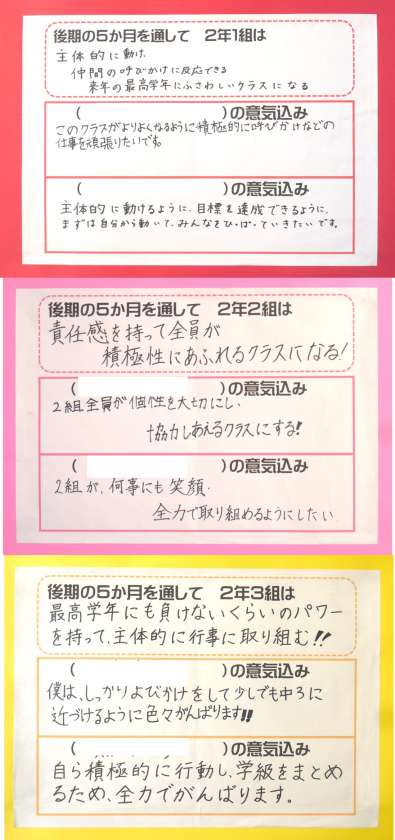 後期の5か月を通して　2年1組は
主体的に動け、
仲間の呼びかけに反応できる
来年の最高学年にふさわしいクラスになる
(　　　)の意気込み
このクラスがよりよくなるように積極的に呼びかけなどの
仕事を頑張りたいです。
(　　　)の意気込み
主体的に動けるように、目標を達成できるように、
まずは自分から動いて、みんなをひっぱっていきたいです。
後期の5か月を通して　2年2組は
責任感を持って全員が
積極性にあふれるクラスになる!
(　　　)の意気込み
2組全員が個性を大切にし、
協力しあえるクラスにする!
(　　　)の意気込み
2組が、何事にも笑顔・
全力で取り組めるようにしたい。
後期の5か月を通して　2年3組は
最高学年にも負けないくらいのパワー
を持って、主体的に行事に取り組む!!
(　　　)の意気込み
僕は、しっかりよびかけをして少しでも中3に
近づけるように色々がんばります!!
(　　　)の意気込み
自ら積極的に行動し、学級をまとめ
るため、全力でがんばります。